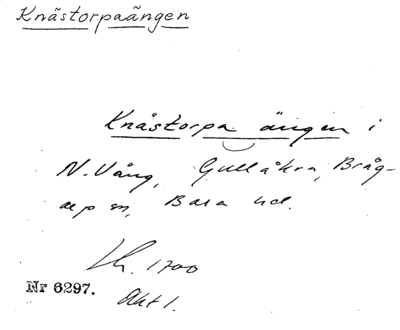 Knästorpaängen
Knästorpa ängen i
N. Vång, Gullåkra, Bråg-
arp sn, Bara hd.
Lk. 1700
Nr 6297.
Akt 1.